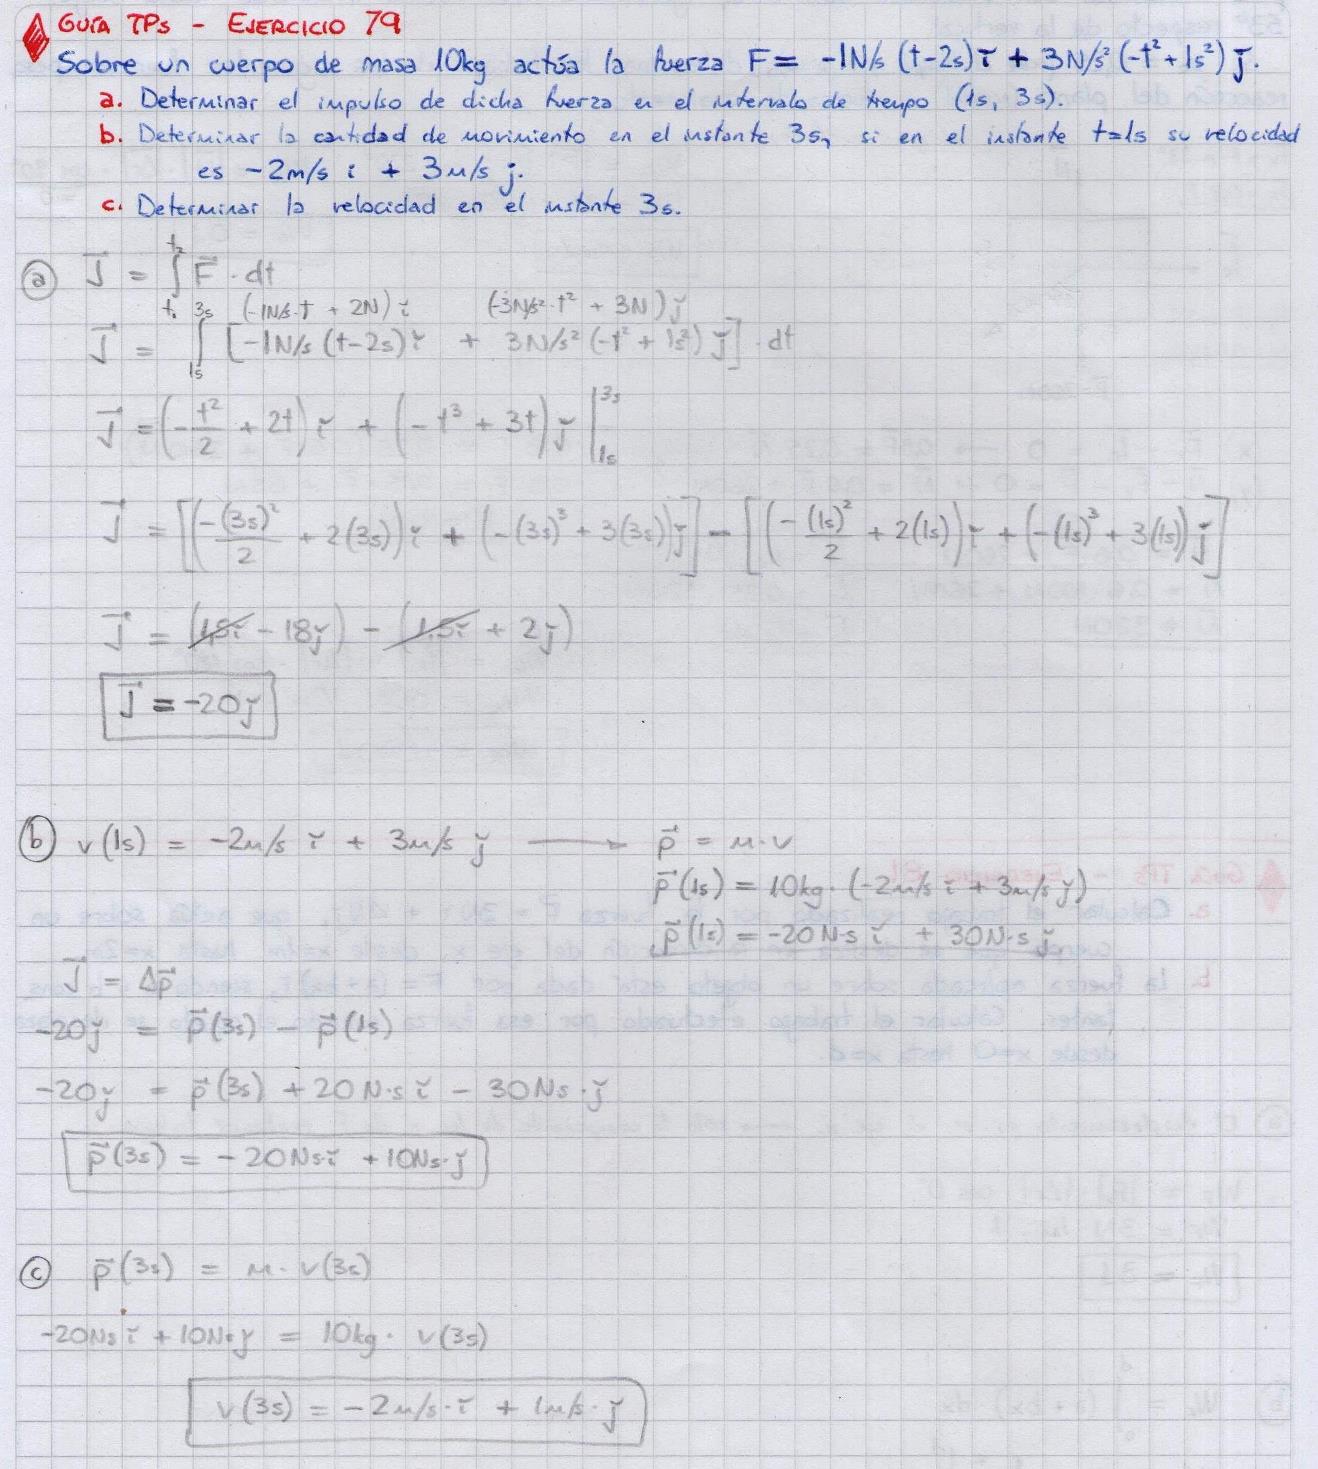 GUÍA TPs - EJERCICIO 79
Sobre un cuerpo de masa 10kg actúa la fuerza F = -1N/s (t-2s) ĭ + 3N/s² (-t² + 1s²) ĵ.
a. Determinar el impulso de dicha fuerza en el intervalo de tiempo (1s, 3s).
b. Determinar la cantidad de movimiento en el instante 3s, si en el instante t=1s su velocidad
es -2m/s i + 3m/s j.
c. Determinar la velocidad en el instante 3s.
ⓐ J⃗ = ∫ₜ₁^t₂ F⃗ · dt
(-1N/s·t + 2N) ĭ (-3N/s²·t² + 3N) ĵ
J⃗ = ∫₁ₛ^3s [-1N/s (t-2s) ĭ + 3N/s² (-t² + 1s²) ĵ] · dt
J⃗ = (-t²/2 + 2t) ĭ + (-t³ + 3t) ĵ |₁ₛ^3s
J⃗ = [(-(3s)²/2 + 2(3s)) ĭ + (-(3s)³ + 3(3s)) ĵ] - [(-(1s)²/2 + 2(1s)) ĭ + (-(1s)³ + 3(1s)) ĵ]
J⃗ = (1,5ĭ - 18ĵ) - (1.5ĭ + 2ĵ)
J⃗ = -20ĵ
ⓑ v(1s) = -2m/s ĭ + 3m/s ĵ ⟶ p⃗ = m·v
p⃗(1s) = 10kg · (-2m/s ĭ + 3m/s ĵ)
p⃗(1s) = -20N·s ĭ + 30N·s ĵ
J⃗ = Δp⃗
-20ĵ = p⃗(3s) - p⃗(1s)
-20ĵ = p⃗(3s) + 20N·s ĭ - 30Ns·ĵ
p⃗(3s) = -20Ns·ĭ + 10Ns·ĵ
ⓒ p⃗(3s) = m · v(3s)
-20Ns ĭ + 10Ns ĵ = 10kg · v(3s)
v(3s) = -2m/s·ĭ + 1m/s·ĵ